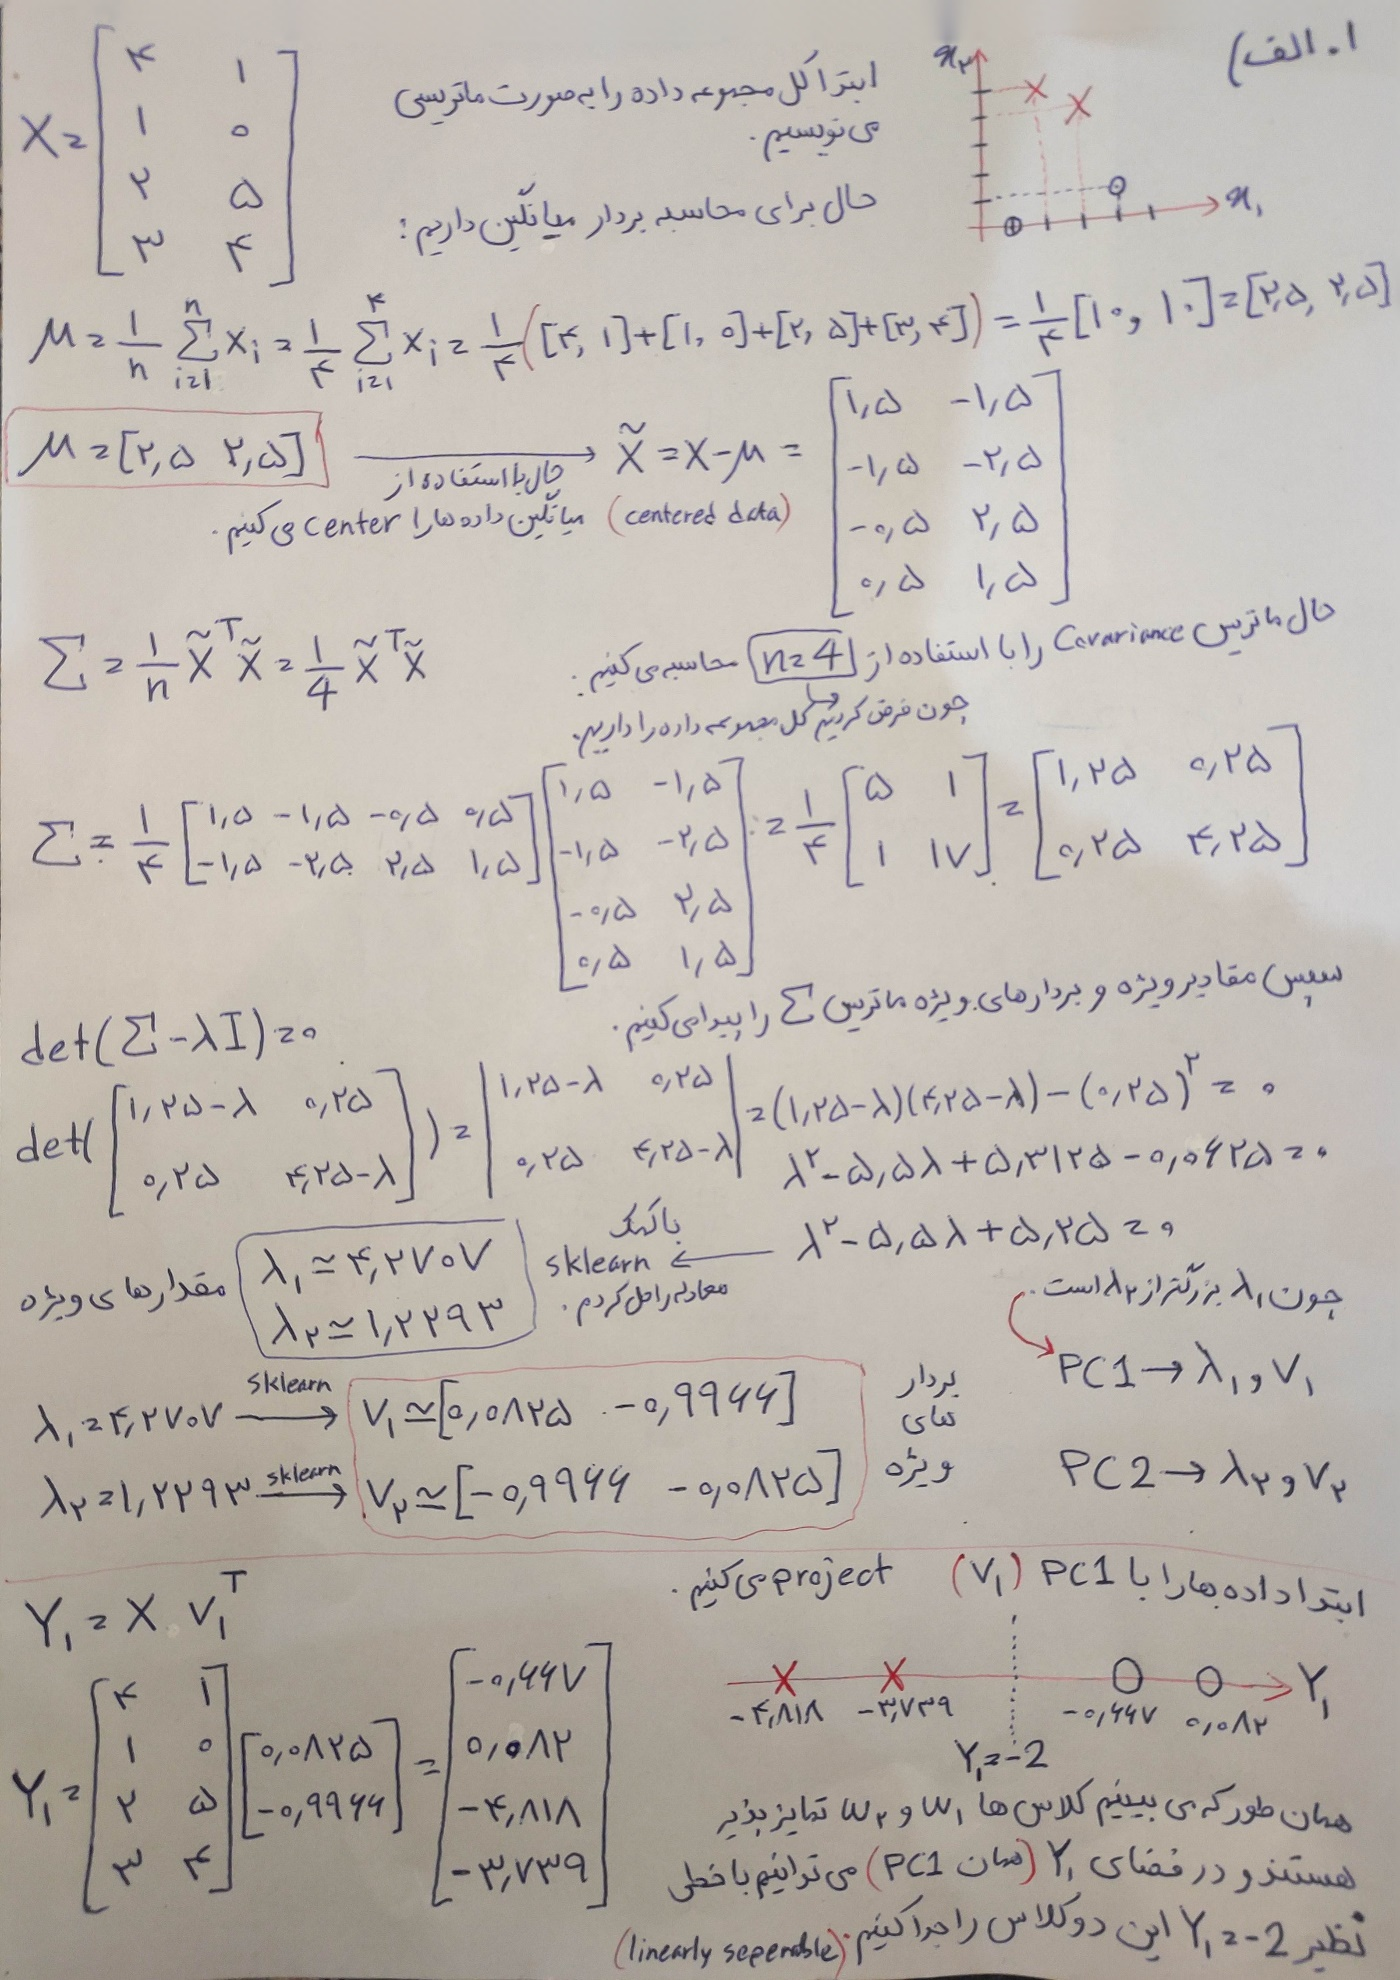 ۱. الف)
x۲
x۱
X = [۴ ۱
۱ ۰
۲ ۵
۳ ۴]
ابتدا کل مجموعه داده را به صورت ماتریسی
می نویسیم.
حال برای محاسبه بردار میانگین داریم:
M = 1/n Σ_{i=1}^{n} x_i = ۱/۴ Σ_{i=1}^{۴} x_i = ۱/۴ ([۴, ۱]+[۱, ۰]+[۲, ۵]+[۳, ۴]) = ۱/۴ [۱۰, ۱۰] = [۲,۵, ۲,۵]
M = [۲,۵ ۲,۵] → X̃ = X - M = [۱,۵ -۱,۵
-۱,۵ -۲,۵
-۰,۵ ۲,۵
۰,۵ ۱,۵]
حال با استفاده از
میانگین داده ها را center می کنیم.
(centered data)
حال ماتریس Covariance را با استفاده از n=4 محاسبه می کنیم:
چون فرض کردیم کل مجموعه داده را داریم.
Σ = 1/n X̃^T X̃ = 1/4 X̃^T X̃
Σ = ۱/۴ [۱,۵ -۱,۵ -۰,۵ ۰,۵
-۱,۵ -۲,۵ ۲,۵ ۱,۵] [۱,۵ -۱,۵
-۱,۵ -۲,۵
-۰,۵ ۲,۵
۰,۵ ۱,۵] = ۱/۴ [۵ ۱
۱ ۱۷] = [۱,۲۵ ۰,۲۵
۰,۲۵ ۴,۲۵]
سپس مقادیر ویژه و بردارهای ویژه ماتریس Σ را پیدا می کنیم.
det(Σ-λI) = ۰
det([۱,۲۵-λ ۰,۲۵
۰,۲۵ ۴,۲۵-λ]) = |۱,۲۵-λ ۰,۲۵
۰,۲۵ ۴,۲۵-λ| = (۱,۲۵-λ)(۴,۲۵-λ) - (۰,۲۵)^۲ = ۰
λ^۲ - ۵,۵λ + ۵,۳۱۲۵ - ۰,۰۶۲۵ = ۰
λ^۲ - ۵,۵λ + ۵,۲۵ = ۰
با کمک
sklearn ←
معادله را حل کردم.
λ۱ ≃ ۴,۲۷۰۷
λ۲ ≃ ۱,۲۲۹۳
مقدارهای ویژه
چون λ۱ بزرگتر از λ۲ است.
PC1 → λ۱ و V۱
PC2 → λ۲ و V۲
λ۱ = ۴,۲۷۰۷ sklearn → V۱ ≃ [۰,۰۸۲۵ -۰,۹۹۶۶]
λ۲ = ۱,۲۲۹۳ sklearn → V۲ ≃ [-۰,۹۹۶۶ -۰,۰۸۲۵]
بردار
های
ویژه
ابتدا داده ها را با PC1 (V۱) project می کنیم.
Y۱ = X V۱^T
Y۱ = [۴ ۱
۱ ۰
۲ ۵
۳ ۴] [۰,۰۸۲۵
-۰,۹۹۶۶] = [-۰,۶۶۷
۰,۰۸۲
-۴,۸۱۸
-۳,۷۳۹]
Y۱
-۴,۸۱۸ -۳,۷۳۹ -۰,۶۶۷ ۰,۰۸۲
Y۱=-2
همان طور که می بینیم کلاس ها ω۱ و ω۲ تمایز پذیر
هستند و در فضای Y۱ (همان PC1) می توانیم با خطی
نظیر Y۱=-2 این دو کلاس را جدا کنیم.
(linearly seperable)